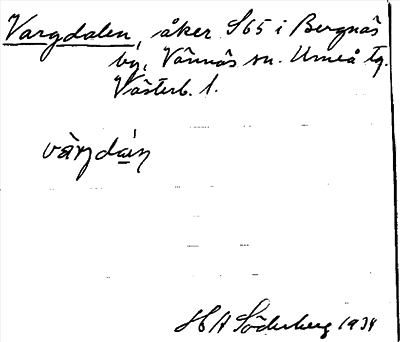 Vargdalen, åker S65 i Bergnäs
by, Vännäs sn. Umeå tg.
Västerb. l.
H A Söderberg 1934